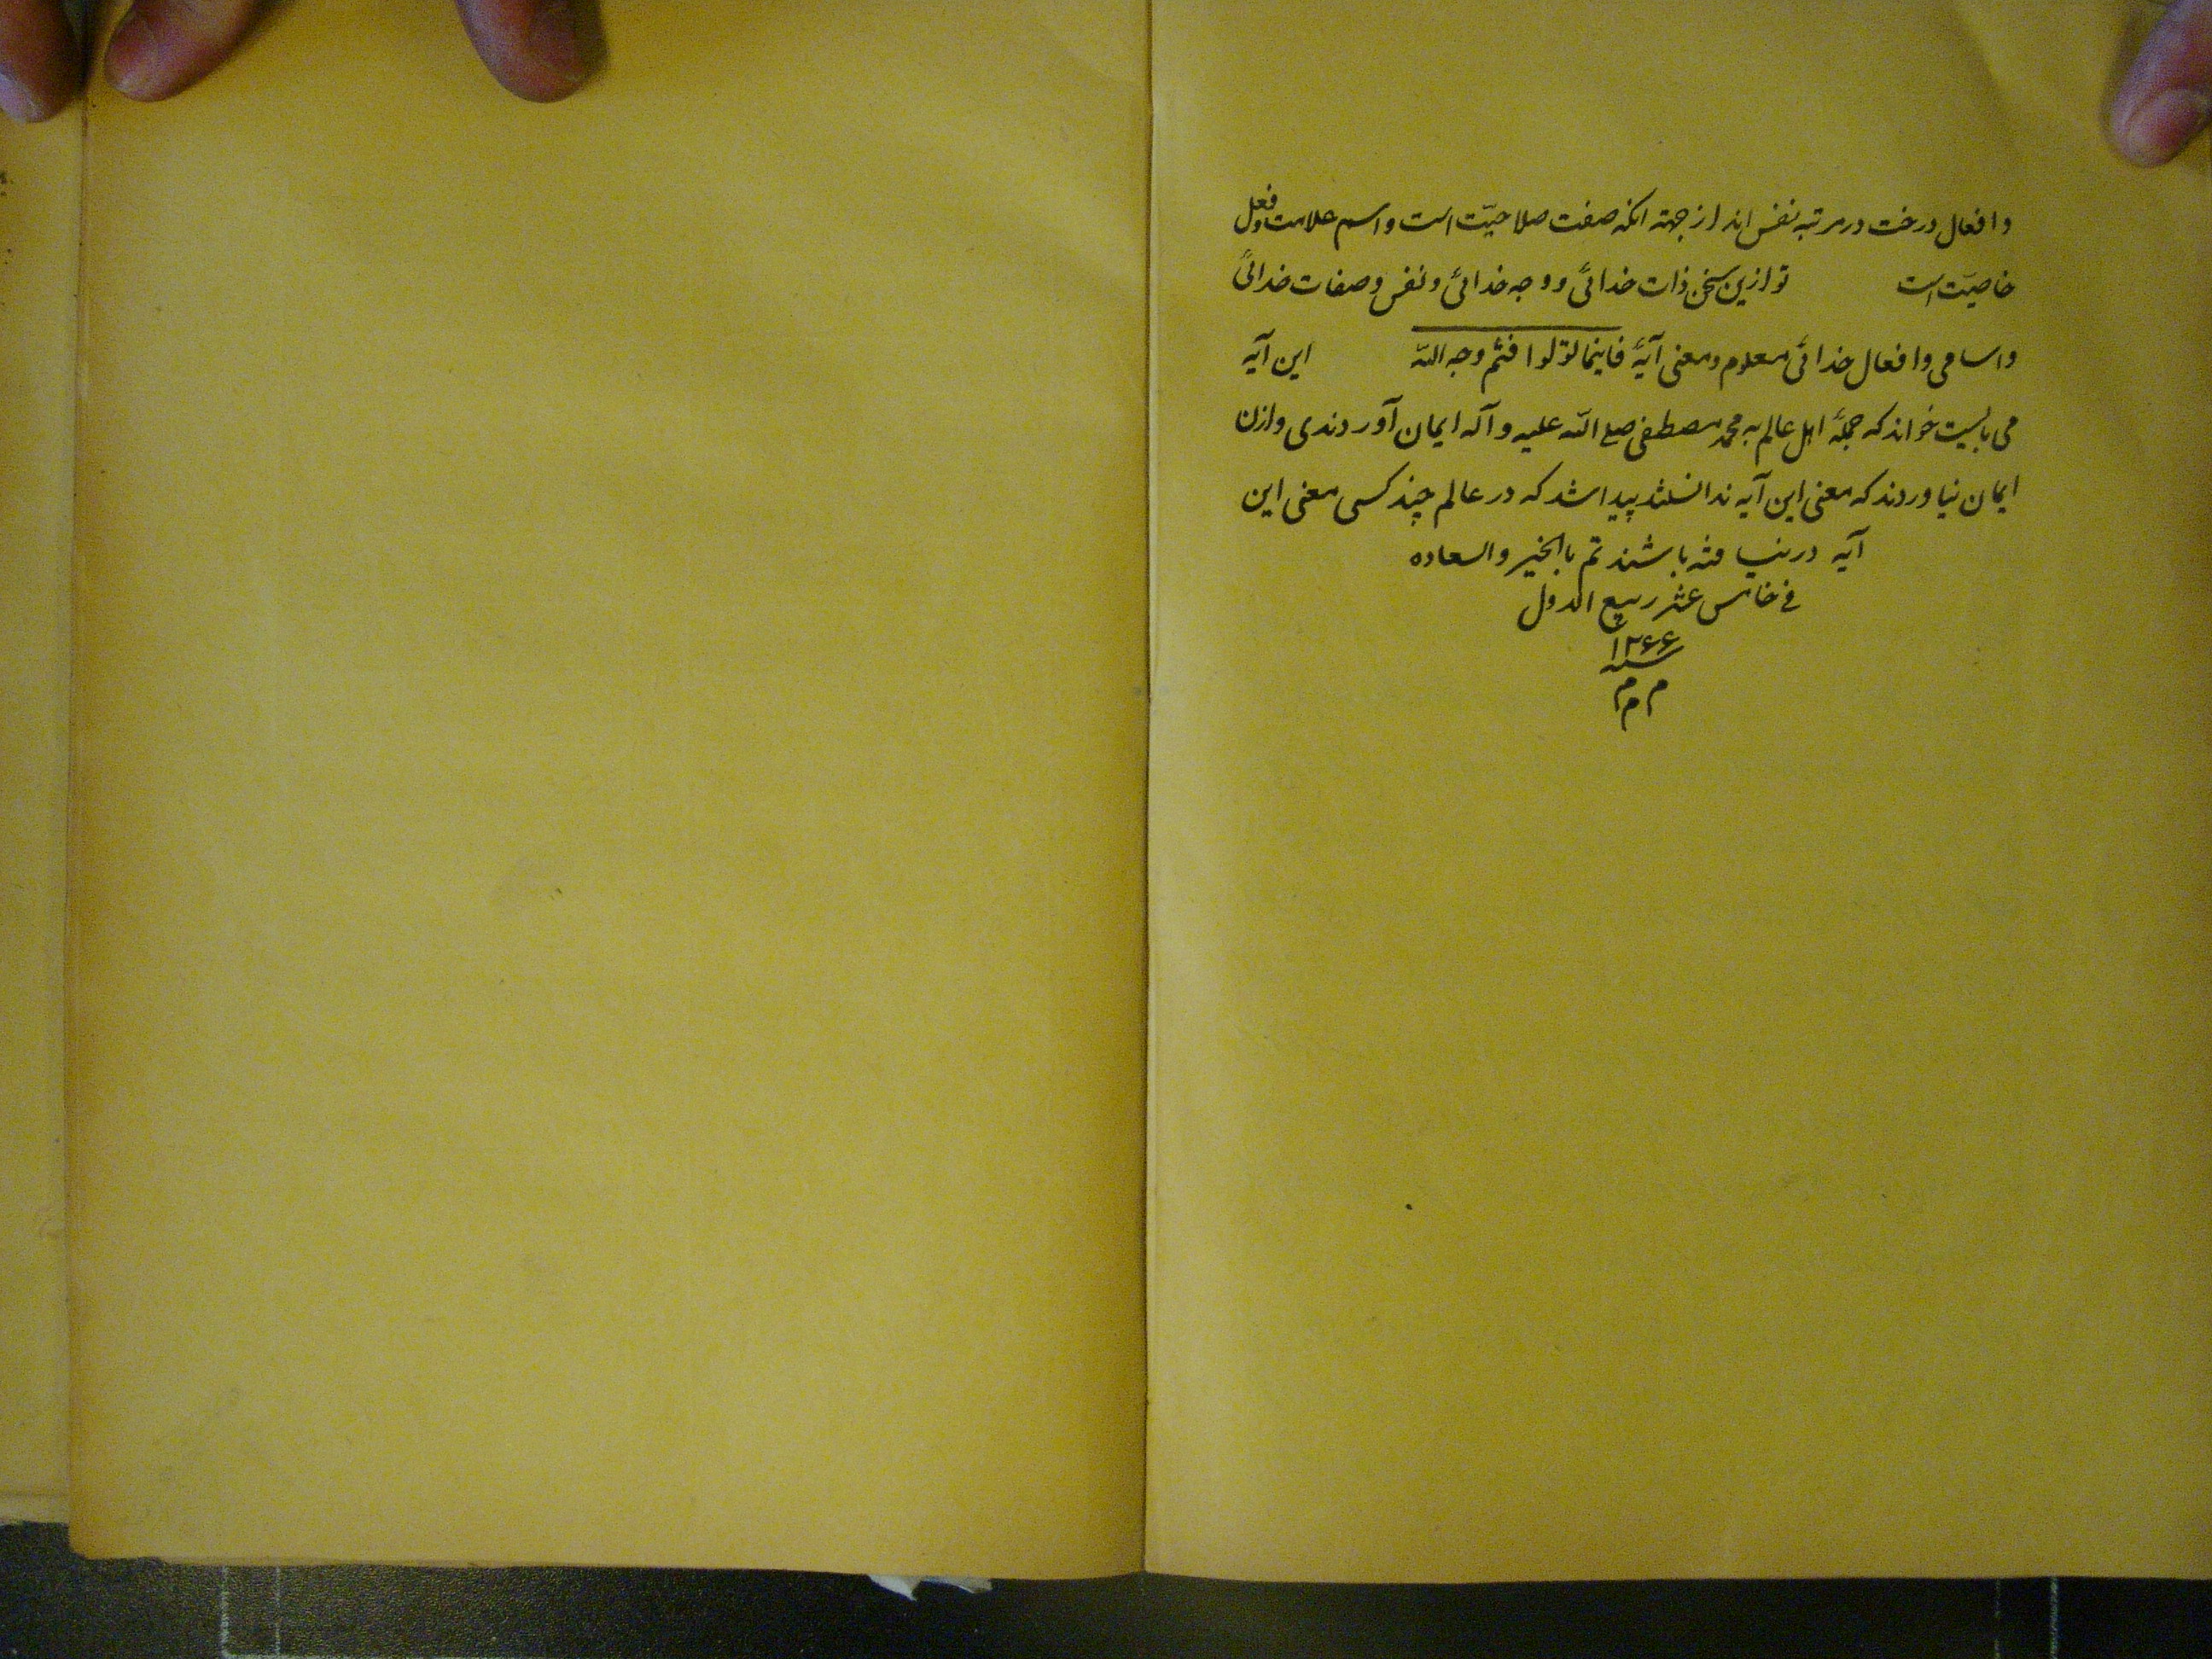 و افعال درخت در مرتبه نفس اند از جهته انکه صفت صلاحیّت است و اسم علامت و فعل
خاصیّت است توازین سخن ذات خدائی و وجه خدائی و نفس و صفات خدائی
و اسامی و افعال خدائی معلوم و معنی آیهٔ فاینما تولوا فثم وجه الله این آیه
می بایست خواند که جملهٔ اهل عالم به محمد مصطفی صلع الله علیه و آله ایمان آوردندی وازان
ایمان نیاوردند که معنی این آیه ندانستند پیدا شد که در عالم چند کسی معنی این
آیه دریافته باشند تم باالخیر والسعاده
فی خامس عشر ربیع الاول
سنه ۱۲۶۶
م م م